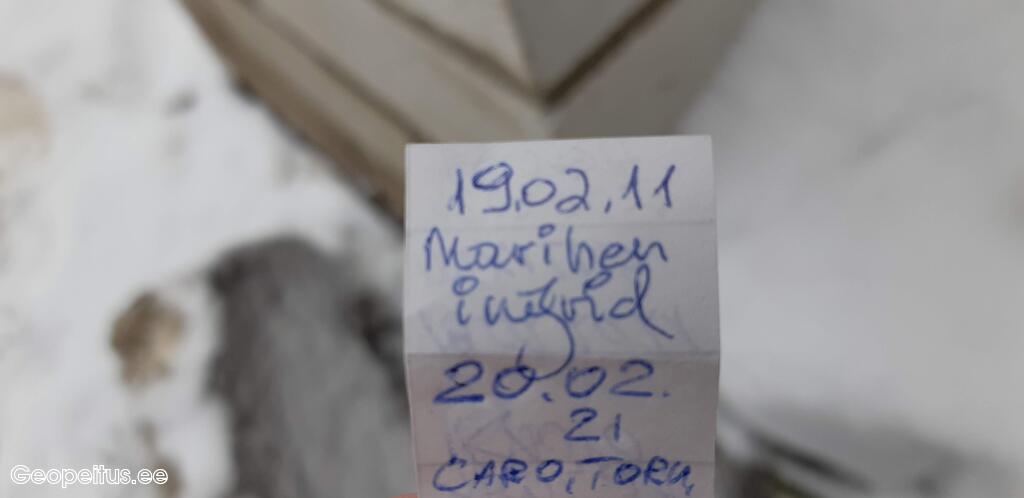 19.02.11
Marihen
20.02.
21
CARO, TORU,
Geopeitus.ee